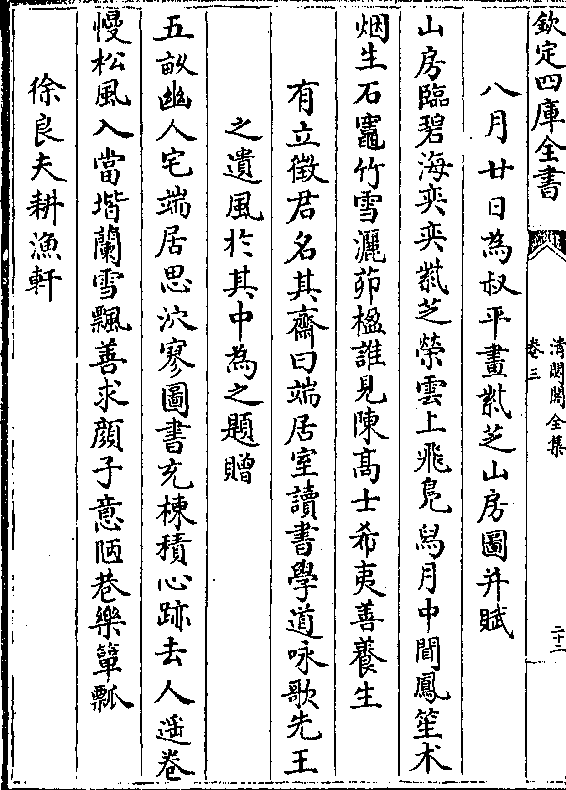 欽定四庫全書
清閟閣全集
卷三
二十二
八月廿日為叔平畫紫芝山房圖并賦
山房臨碧海奕奕紫芝榮雲上飛鳬舄月中聞鳳笙术
烟生石竈竹雪灑茆楹誰見陳髙士希夷善養生
有立徵君名其齋曰端居室讀書學道咏歌先王
之遺風於其中為之題贈
五畝幽人宅端居思泬寥圖書充棟積心跡去人遥卷
慢松風入當堦蘭雪飄善求顔子意陋巷樂簞瓢
徐良夫耕漁軒